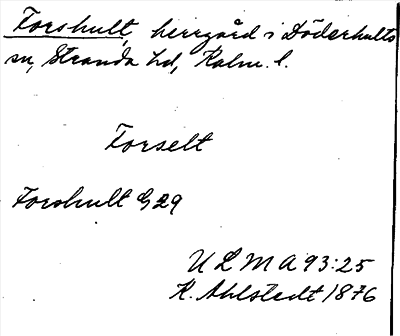 Forshult, herrgård i Döderhults
sn, Stranda hd, Kalm. l.
Forselt
Forshult G 29
ULMA 93:25
K. Ahlstedt 1876